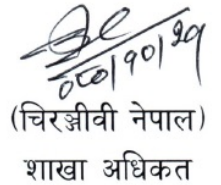 ०८०|१०|२१
(चिरञ्जीवी नेपाल)
शाखा अधिकत